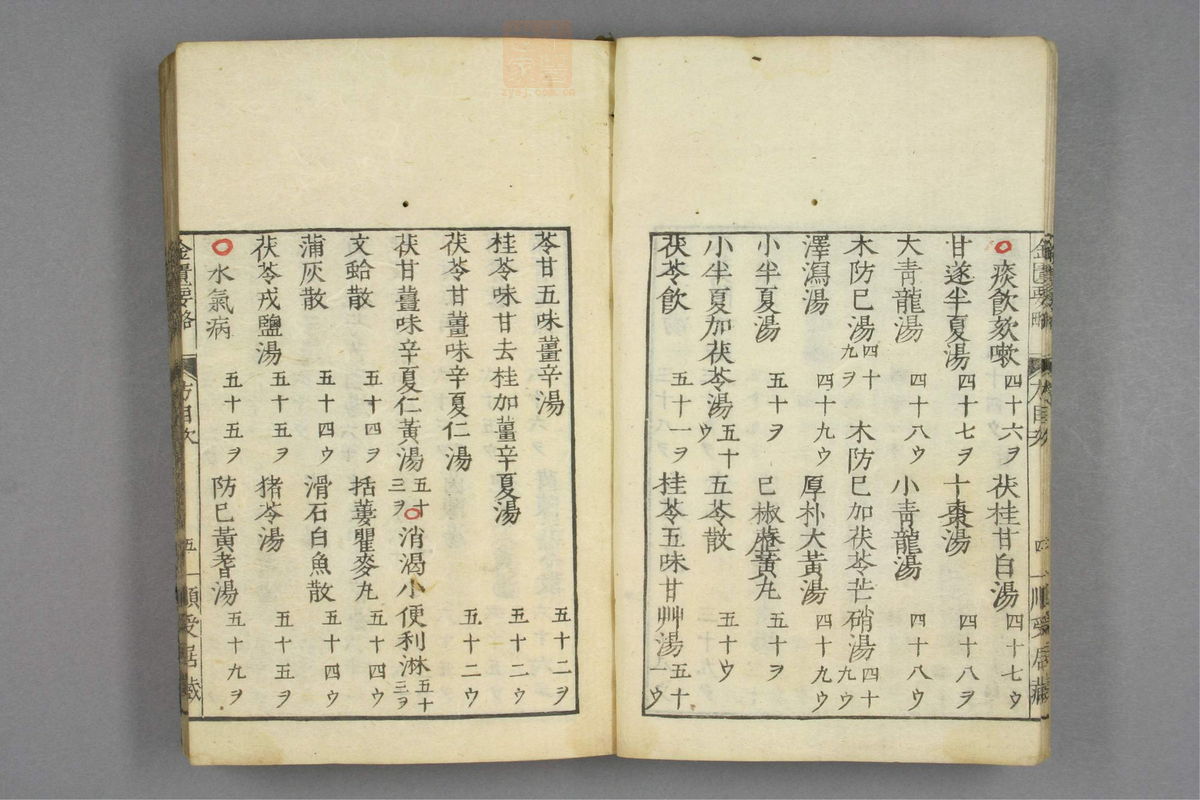 痰飲欬嗽 四十六ヲ 茯桂甘白湯 四十七ウ
甘遂半夏湯 四十七ヲ 十棗湯 四十八ヲ
大青龍湯 四十八ウ 小青龍湯 四十八ウ
木防已湯 四十九ヲ 木防已加茯苓芒硝湯 四十九ウ
澤瀉湯 四十九ウ 厚朴大黃湯 四十九ウ
小半夏湯 五十ヲ 已椒藶黃丸 五十ヲ
小半夏加茯苓湯 五十ウ 五苓散 五十ウ
茯苓飲 五十一ヲ 桂苓五味甘艸湯 五十一ウ
苓甘五味薑辛湯 五十二ヲ
桂苓味甘去桂加薑辛夏湯 五十二ウ
茯苓甘薑味辛夏仁湯 五十二ウ
茯甘薑味辛夏仁黃湯 五十三ヲ 消渴小便利淋 五十三ヲ
文蛤散 五十四ヲ 括蔞瞿麥丸 五十四ウ
蒲灰散 五十四ウ 滑石白魚散 五十四ウ
茯苓戎鹽湯 五十五ヲ 猪苓湯 五十五ヲ
水氣病 五十五ヲ 防已黃耆湯 五十九ヲ
金匱要略 方目次 五 順受居藏
zysj.com.cn